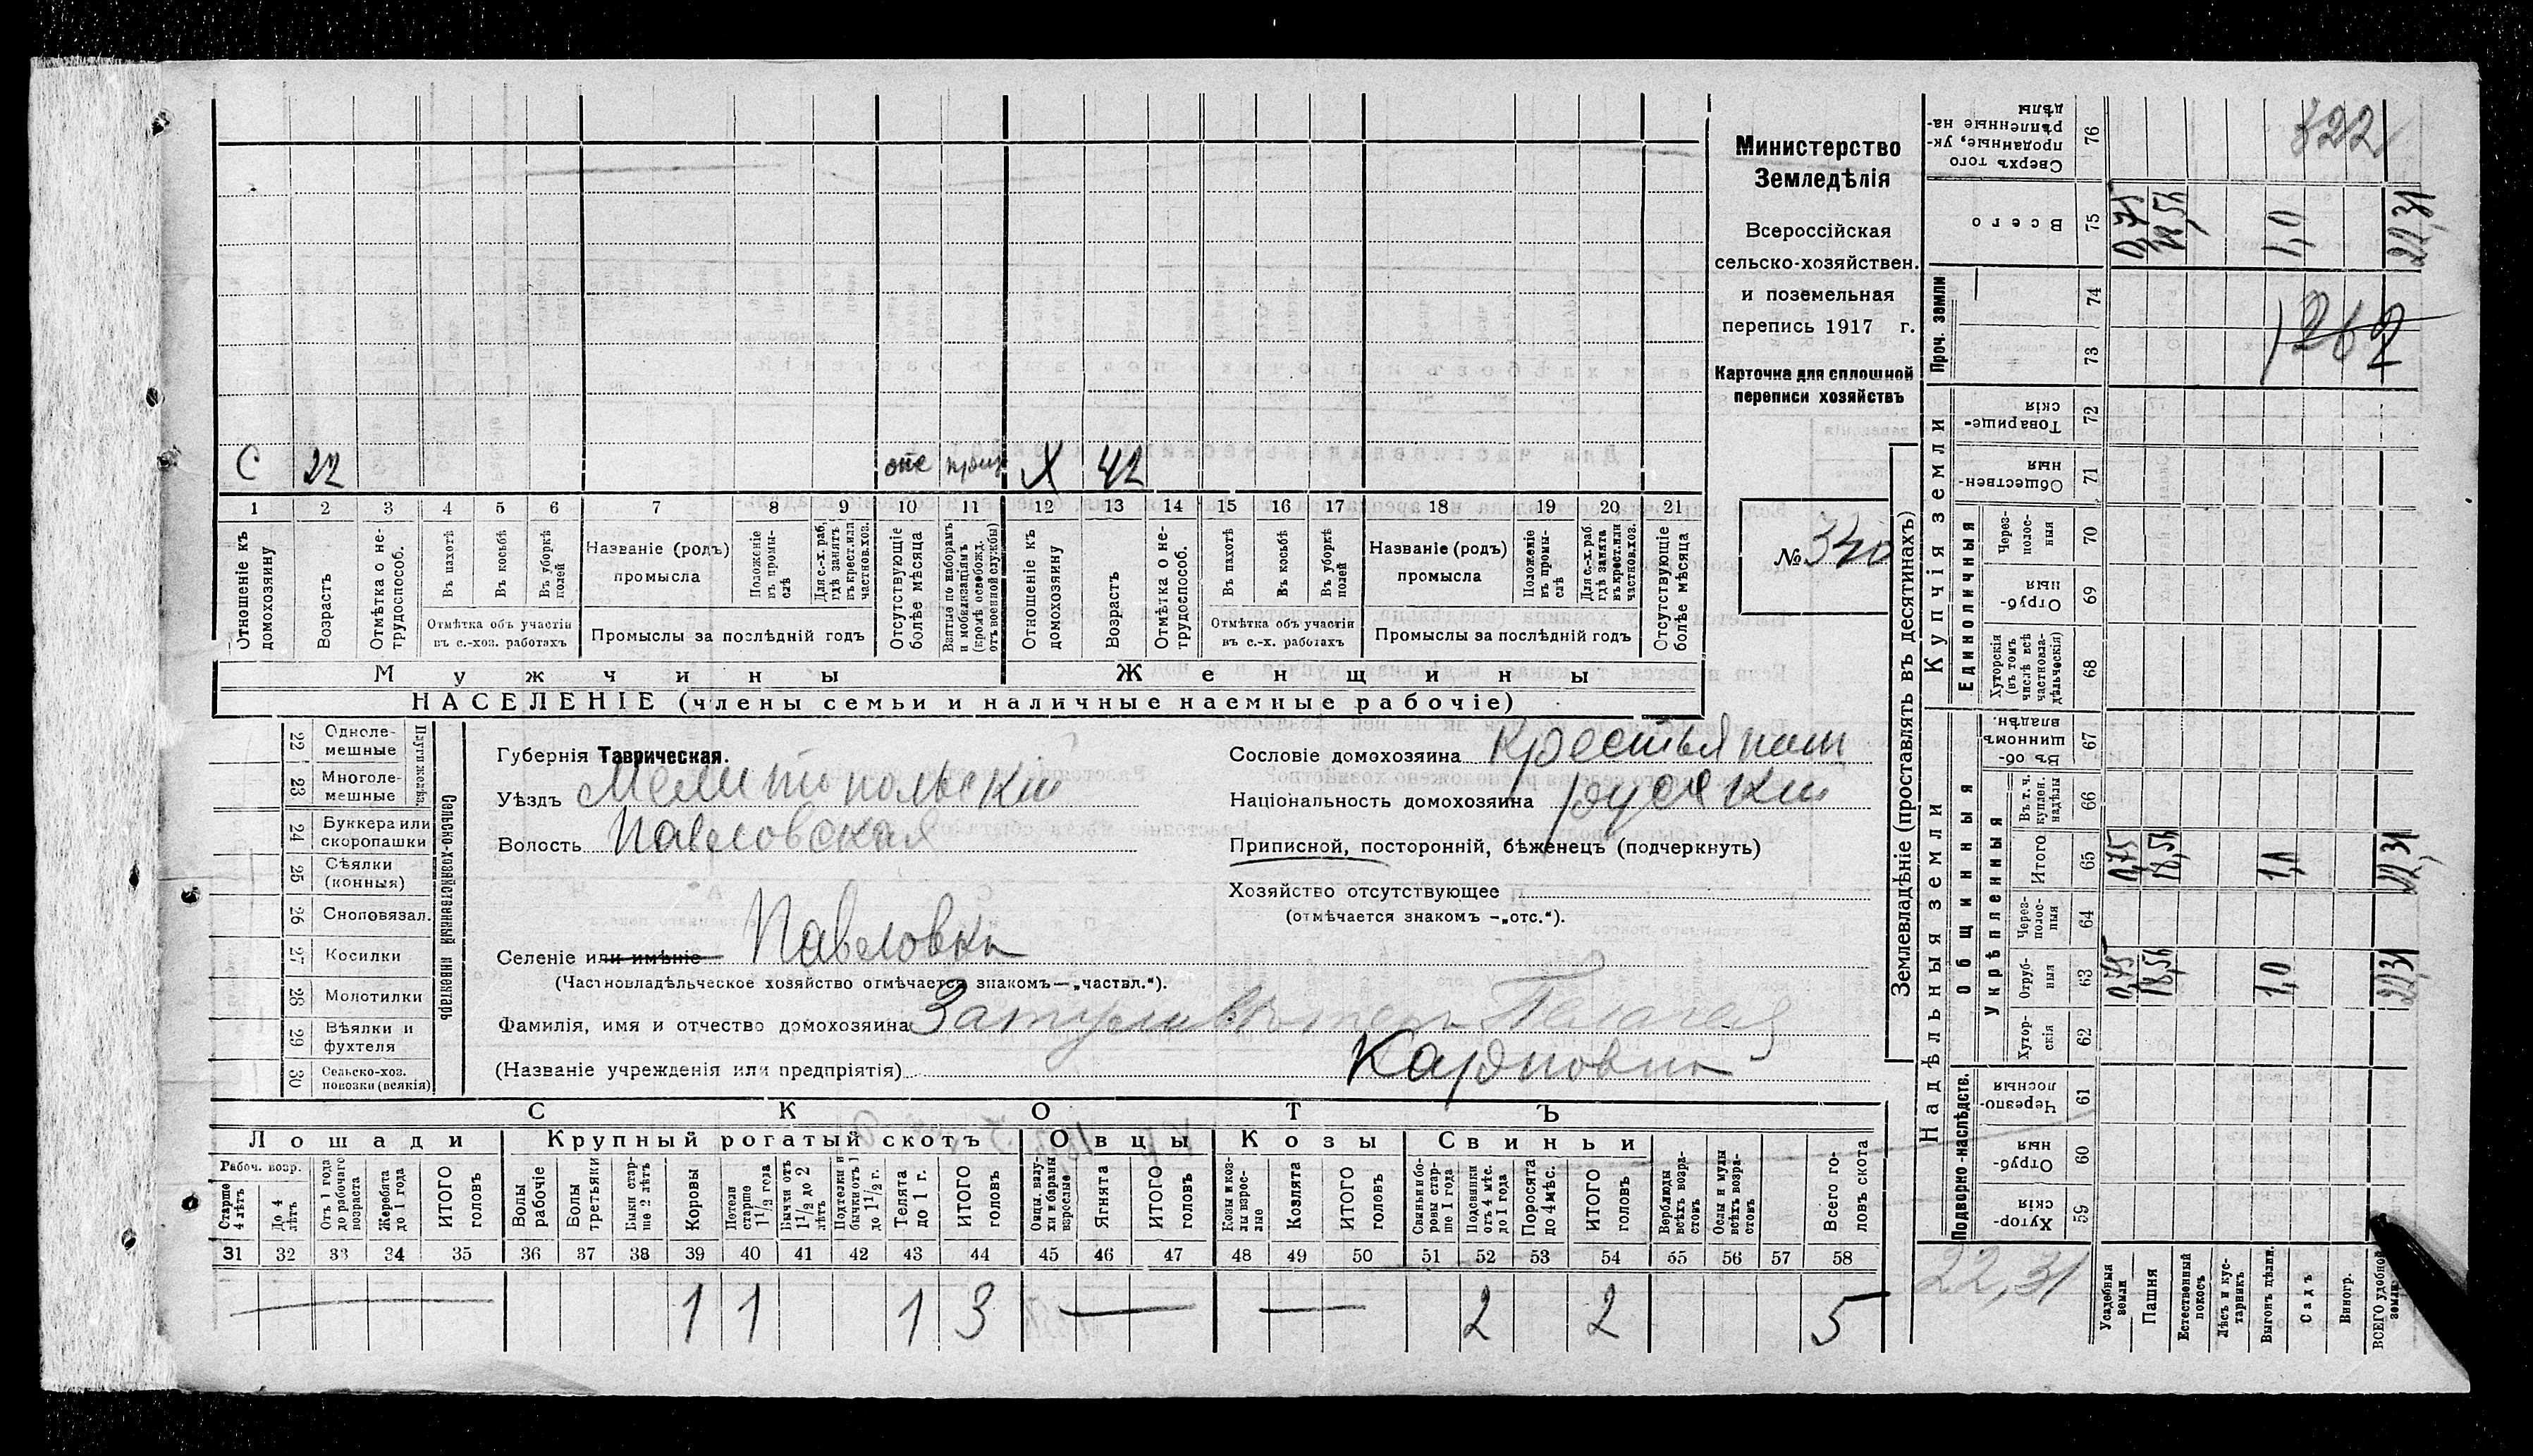 С 22 отс приз Х 42
1 2 3 4 5 6 7 8 9 10 11 12 13 14 15 16 17 18 19 20 21
Отношеніе къ домохозяину
Возрастъ
Отмѣтка о не-трудоспособ.
Въ пахотѣ
Въ косьбѣ
Въ уборкѣ полей
Отмѣтка объ участіи въ с.-хоз. работахъ
Названіе (родъ) промысла
Положеніе въ промы-слѣ
Для с.-х. раб. гдѣ занятъ въ крест. или частнов. хоз.
Промыслы за послѣдній годъ
Отсутствующіе болѣе мѣсяца
Взятые по наборамъ и мобилизаціямъ (кромѣ освобожд. отъ военной службы)
Отношеніе къ домохозяину
Возрастъ
Отмѣтка о не-трудоспособ.
Въ пахотѣ
Въ косьбѣ
Въ уборкѣ полей
Отмѣтка объ участіи въ с.-х. работахъ
Названіе (родъ) промысла
Положеніе въ промы-слѣ
Для с.-х. раб. гдѣ занята въ крест. или частнов. хоз.
Промыслы за послѣдній годъ
Отсутствующіе болѣе мѣсяца
Мужчины Женщины
НАСЕЛЕНІЕ (члены семьи и наличные наемные рабочіе)
Министерство
Земледѣлія
Всероссійская
сельско-хозяйствен.
и поземельная
перепись 1917 г.
Карточка для сплошной
переписи хозяйствъ
№ 340
22 Одноле-мешные
23 Многоле-мешные
Плуги желѣз.
24 Буккера или скоропашки
25 Сѣялки (конныя)
26 Сноповязал.
27 Косилки
28 Молотилки
29 Вѣялки и фухтеля
30 Сельско-хоз. повозки (всякія)
Сельско-хозяйственный инвентарь
Губернія Таврическая.
Уѣздъ Мелитопольскій
Волость Павловская
Селеніе или имѣніе Павловка
(Частновладѣльческое хозяйство отмѣчается знакомъ—„частвл.“).
Фамилія, имя и отчество домохозяина Пелагея
Карповна
(Названіе учрежденія или предпріятія)
Сословіе домохозяина крестьянин
Національность домохозяина русский
Приписной, посторонній, бѣженецъ (подчеркнуть)
Хозяйство отсутствующее
(отмѣчается знакомъ —„отс.“).
СКОТЪ
Лошади Крупный рогатый скотъ Овцы Козы Свиньи
Рабоч. возр.
Старше 4 лѣтъ
До 4 лѣтъ
Отъ 1 года до рабочаго возраста
Жеребята до 1 года
ИТОГО головъ
Волы рабочіе
Волы третьяки
Быки стар-ше 2 лѣтъ
Коровы
Нетели старше 1 1/2 года
Бычки отъ 1 1/2 до 2 лѣтъ
Подтелки и бычки отъ 1 до 1 1/2 г.
Телята до 1 г.
ИТОГО головъ
Овцы, валу-хи и бараны взрослые
Ягнята
ИТОГО головъ
Козы и коз-лы взрос-лые
Козлята
ИТОГО головъ
Свиньи и бо-ровы стар-ше 1 года
Подсвинки отъ 4 мѣс. до 1 года
Поросята до 4 мѣс.
ИТОГО головъ
Верблюды всѣхъ возра-стовъ
Ослы и мулы всѣхъ возра-стовъ
Всего го-ловъ скота
31 32 33 34 35 36 37 38 39 40 41 42 43 44 45 46 47 48 49 50 51 52 53 54 55 56 57 58
1 1 1 3 2 2 5
Землевладѣніе (проставлять въ десятинахъ)
Надѣльныя земли Купчія земли Проч. земли
Подворно-наслѣдств.
Общинныя
Укрѣпленныя
Единоличныя
Хутор-скія 59
Отруб-ныя 60
Черезпо-лосныя 61
Хутор-скія 62
Отруб-ныя 63 0,75 18,56 1,0 22,31
Через-полос-ныя 64
Итого 65 0,75 18,56 1,0 22,31
Въ т. ч. куплен. надѣлы 66
Въ об-щинномъ владѣн. 67
Хуторскія (въ томъ числѣ всѣ частновла-дѣльческія) 68
Отруб-ныя 69
Через-полос-ныя 70
Обществен-ныя 71
Товарище-скія 72
73
74
Всего 75 0,75 1,0 22,31
Сверхъ того проданные, ук-рѣпленные на-дѣлы 76
22,31
Усадебныя земли
Пашня
Естественный покосъ
Лѣсъ и кус-тарникъ
Выгонъ дѣлим.
Садъ
Виногр.
ВСЕГО удобной земли